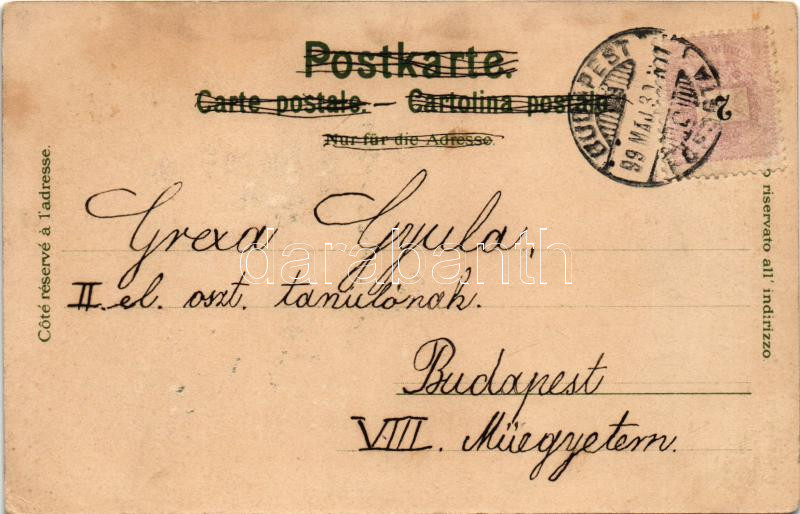 Postkarte.
Carte postale. — Cartolina postale
Nur für die Adresse.
BUDAPEST
99 MAJ
2
Côté réservé à l'adresse.
riservato all' indirizzo.
Grexa Gyula,
II. el. oszt. tanulónak.
Budapest
VIII. Müegyetem.
darabanth